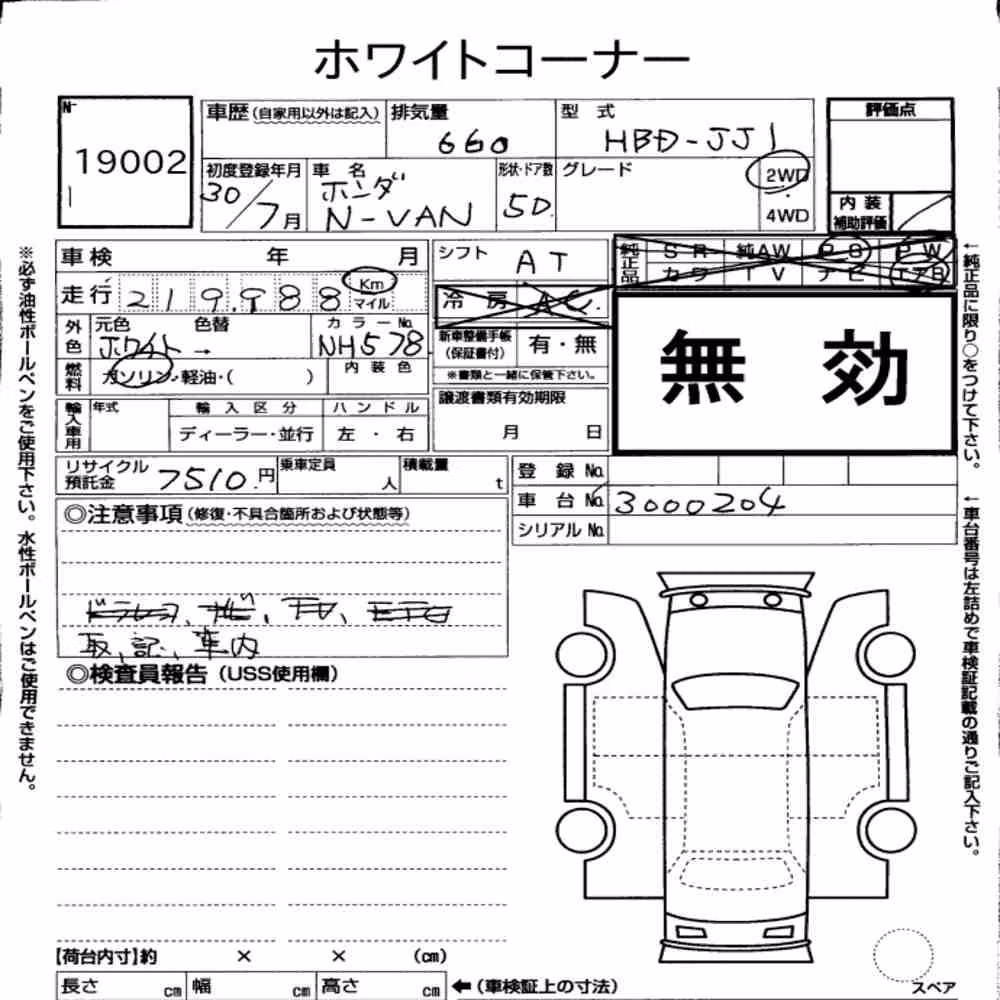 ホワイトコーナー
No. 19002
車歴(自家用以外は記入) 排気量 660 型式 HBD-JJ1 評価点
初度登録年月 30/7月 車名 ホンダ N-VAN 形状・ドア数 5D グレード 2WD・4WD
内装補助評価
車検 年 月 シフト AT 純正品 SR 純AW PS PW
カワ TV ナビ エアB
走行 219,988 Km マイル 冷房 AC
外色 元色 Jホワイト 色替 → カラーNo. NH578 新車整備手帳(保証書付) 有・無
※書類と一緒に保管下さい。
燃料 ガソリン・軽油・( ) 内装色
無効
輸入車用 年式 輸入区分 ハンドル 譲渡書類有効期限
ディーラー・並行 左・右 月 日
リサイクル預託金 7510円 乗車定員 人 積載量 t 登録No.
車台No. 3000204
シリアルNo.
◎注意事項(修復・不具合箇所および状態等)
ドラレコ、ナビ、TV、ETC
取、記、車内
◎検査員報告(USS使用欄)
【荷台内寸】約 × × (cm)
長さ cm 幅 cm 高さ cm ←(車検証上の寸法)
スペア
※必ず油性ボールペンをご使用下さい。水性ボールペンはご使用できません。
←純正品に限り○をつけて下さい。
←車台番号は左詰めで車検証記載の通りご記入下さい。